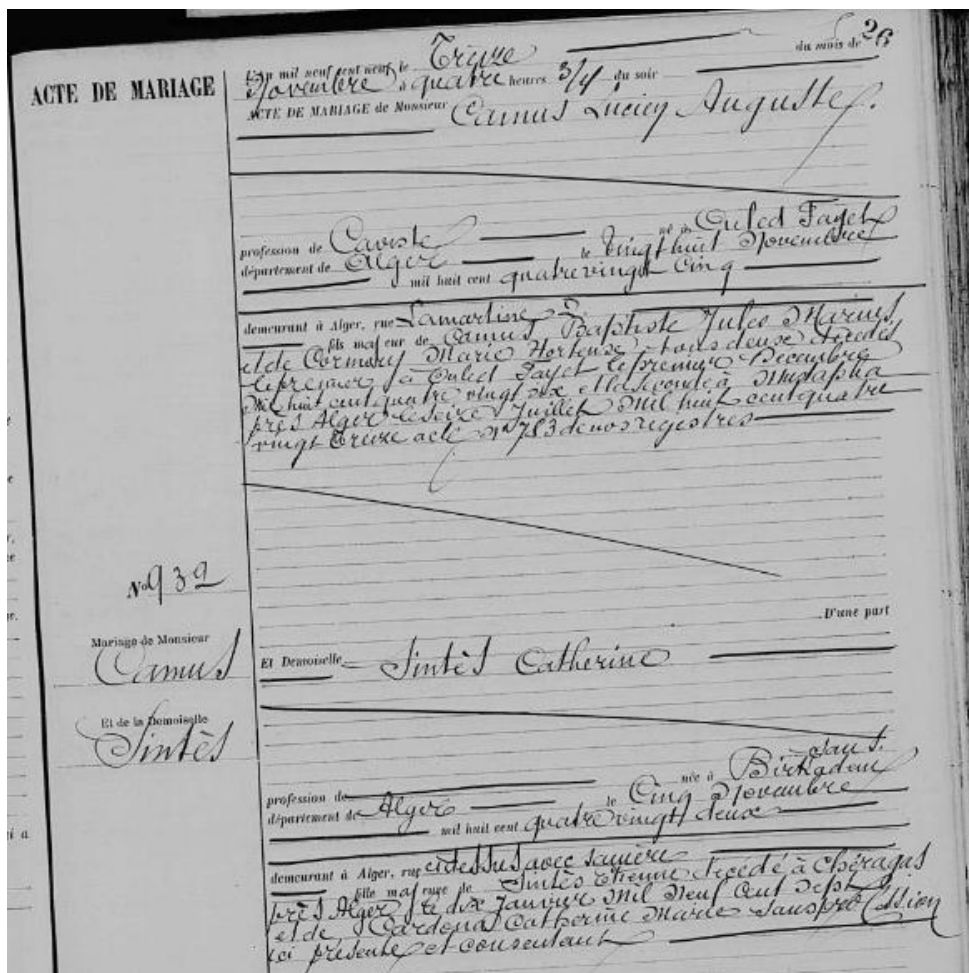 26
du mois de
ACTE DE MARIAGE
L'an mil neuf cent neuf le Treize
Novembre à quatre heures 3/4 du soir
ACTE DE MARIAGE de Monsieur Camus Lucien Auguste
né à Ouled Fayet
profession de Caviste le vingt huit Novembre
département de Alger
mil huit cent quatre vingt cinq
demeurant à Alger, rue Lamartine
fils majeur de Camus Baptiste Jules Marius
et de Cormery Marie Hortense tous deux décédés
le premier à Ouled Fayet le premier Décembre
Mil huit cent quatre vingt six et la seconde à Mustapha
près Alger le seize Juillet Mil huit cent quatre
vingt treize acte No 783 de nos registres
No 932
D'une part
Mariage de Monsieur
Camus
Et Demoiselle Sintès Catherine
Et de la Demoiselle
Sintès
sans
profession de née à Birkadem
département de Alger le Cinq Novembre
mil huit cent quatre vingt deux
demeurant à Alger, rue ci dessus avec sa mère
fille majeure de Sintès Etienne décédé à Chéragas
près Alger le dix Janvier Mil Neuf Cent Sept
et de Cardona Catherine Marie sans profession
ici présente et consentant